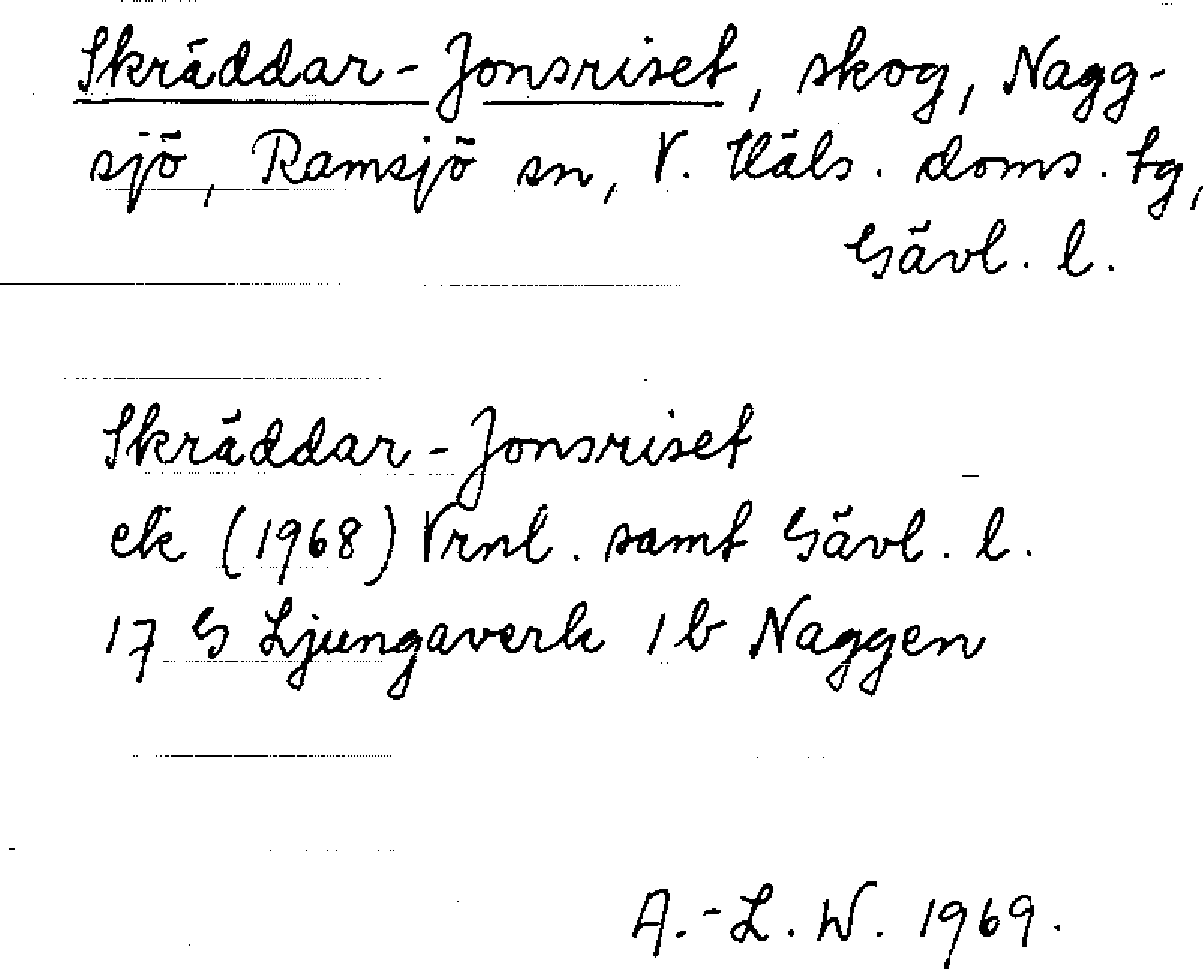 Skräddar-Jonsriset, skog, Nagg-
sjö, Ramsjö sn, V. Häls. doms. tg,
Gävl. l.
Skräddar-Jonsriset
ek (1968) Vrnl. samt Gävl. l.
17 G Ljungaverk 1b Naggen
A.-L. W. 1969.